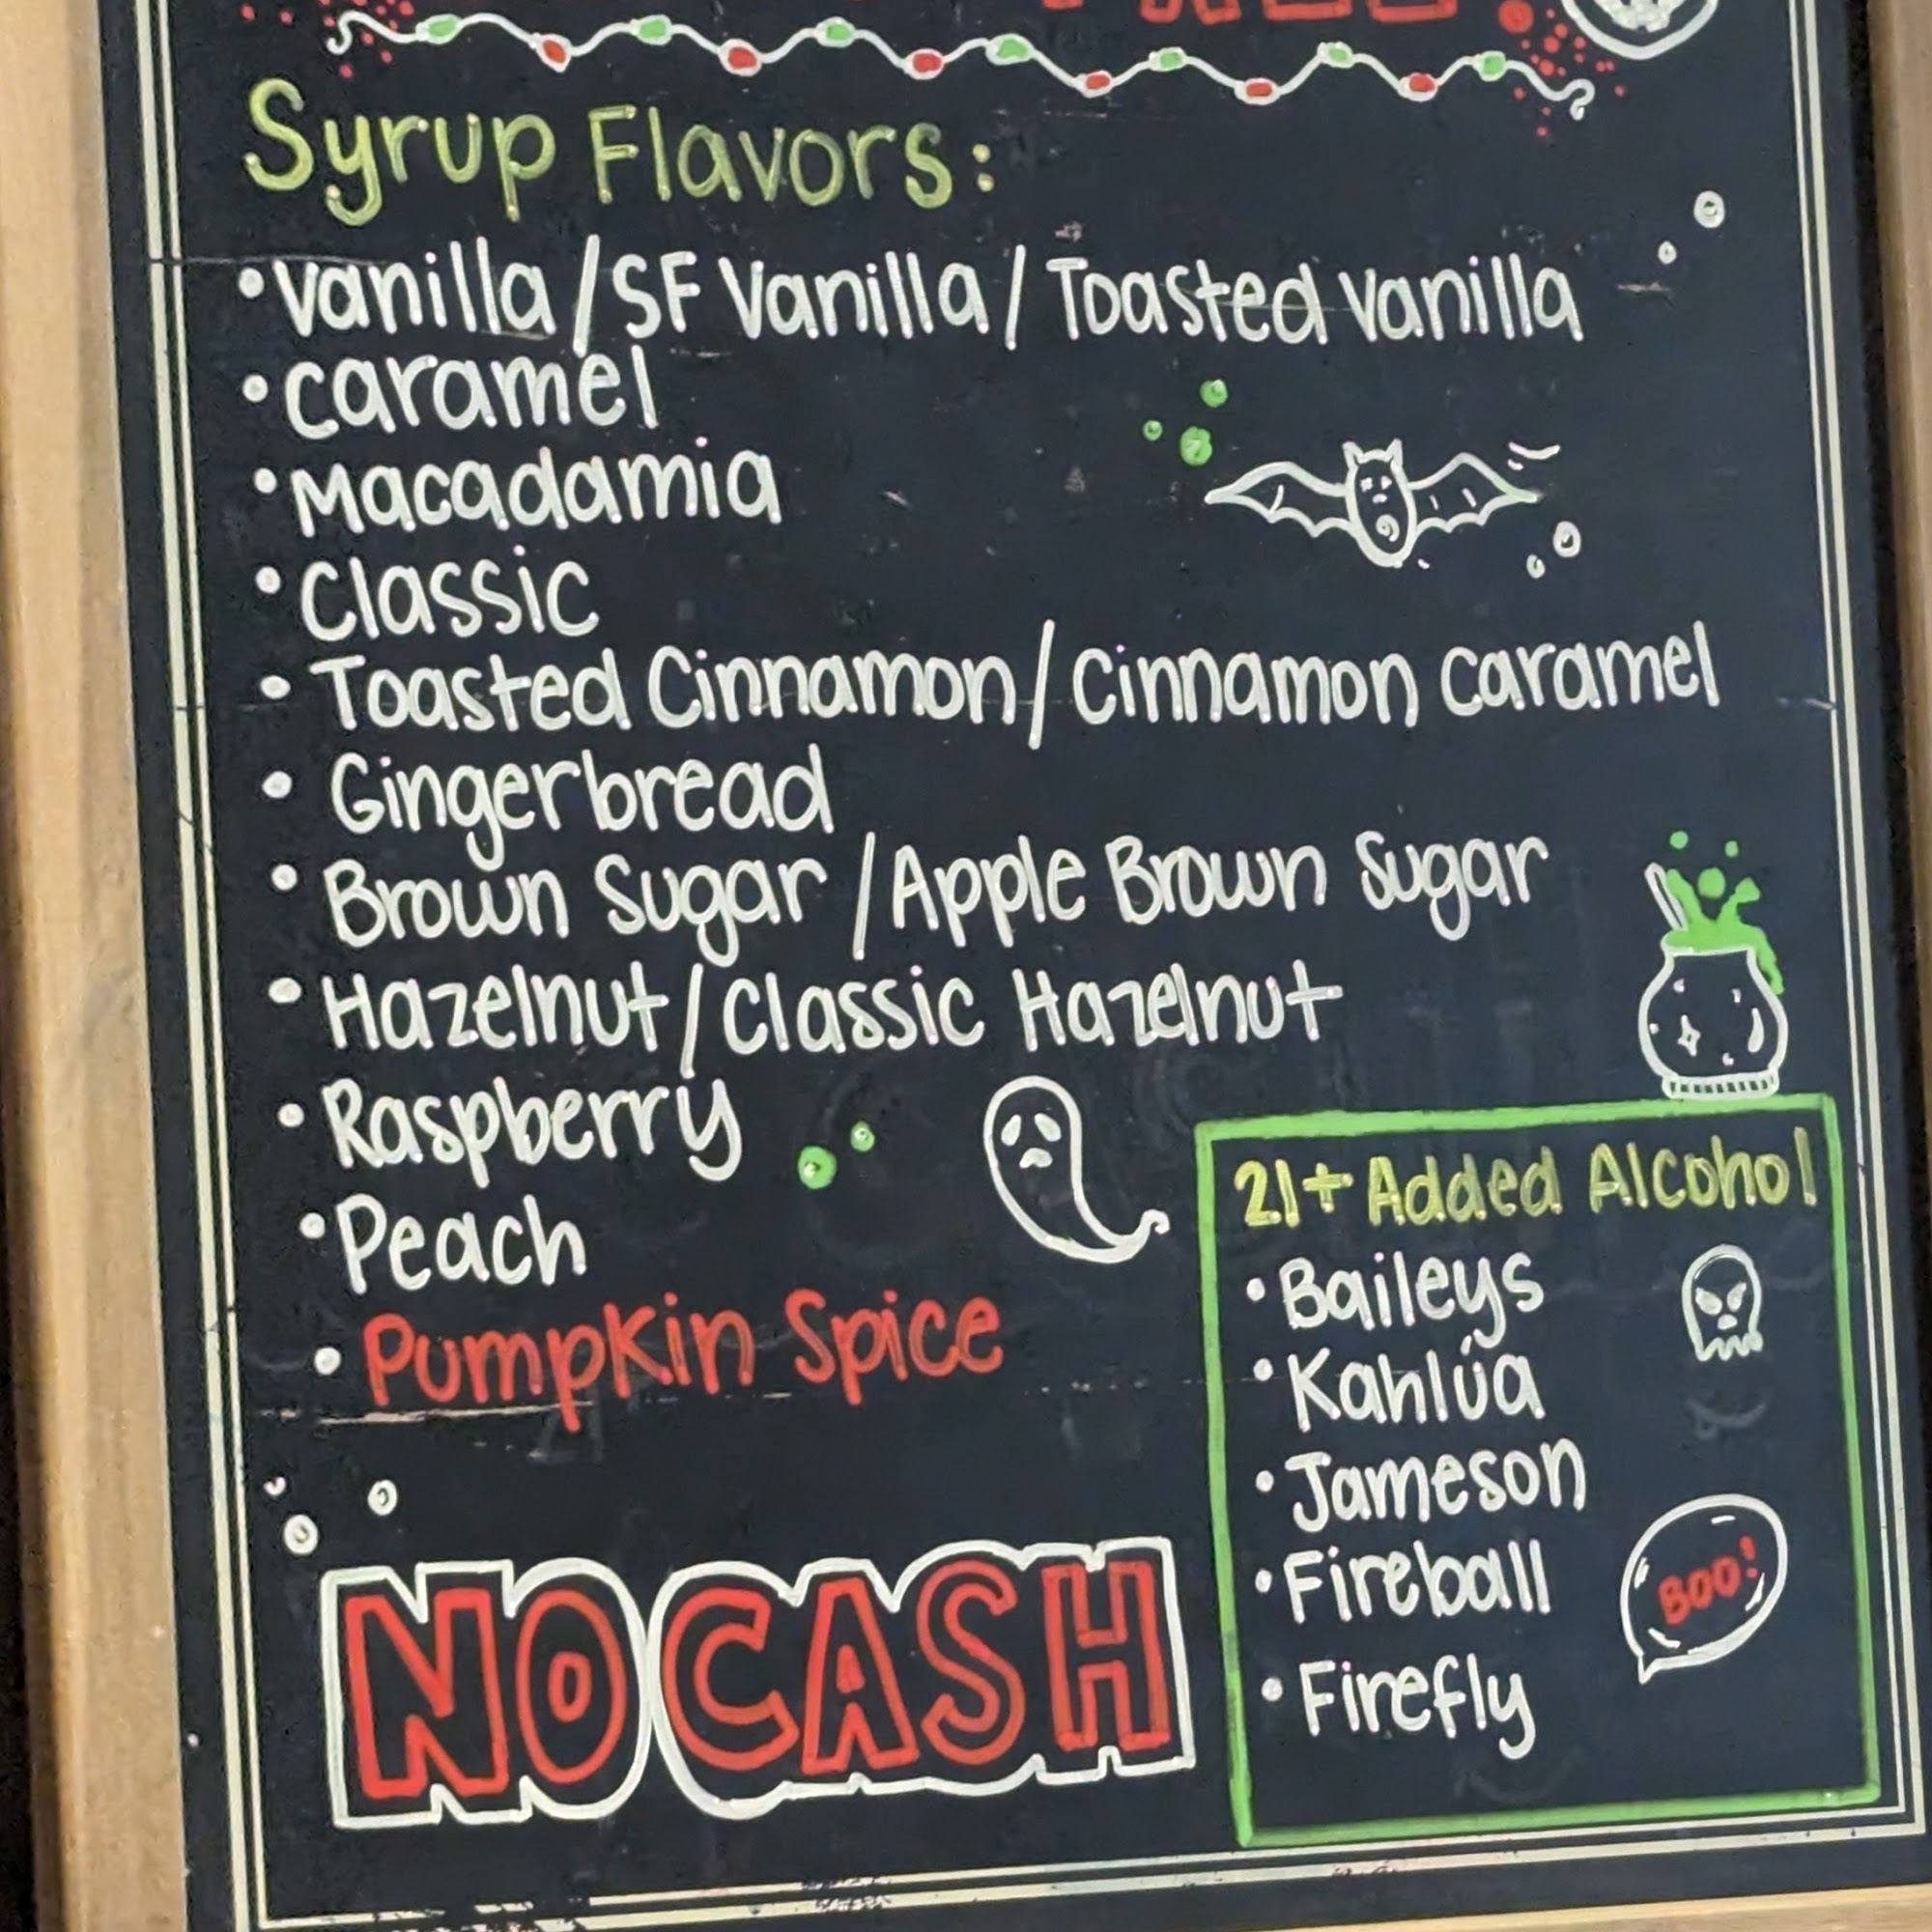 Syrup Flavors:
• Vanilla / SF Vanilla / Toasted Vanilla
• Caramel
• Macadamia
• Classic
• Toasted Cinnamon / Cinnamon Caramel
• Gingerbread
• Brown Sugar / Apple Brown Sugar
• Hazelnut / Classic Hazelnut
• Raspberry
• Peach
• Pumpkin Spice
NO CASH
21+ Added Alcohol
• Baileys
• Kahlúa
• Jameson
• Fireball
• Firefly
BOO!